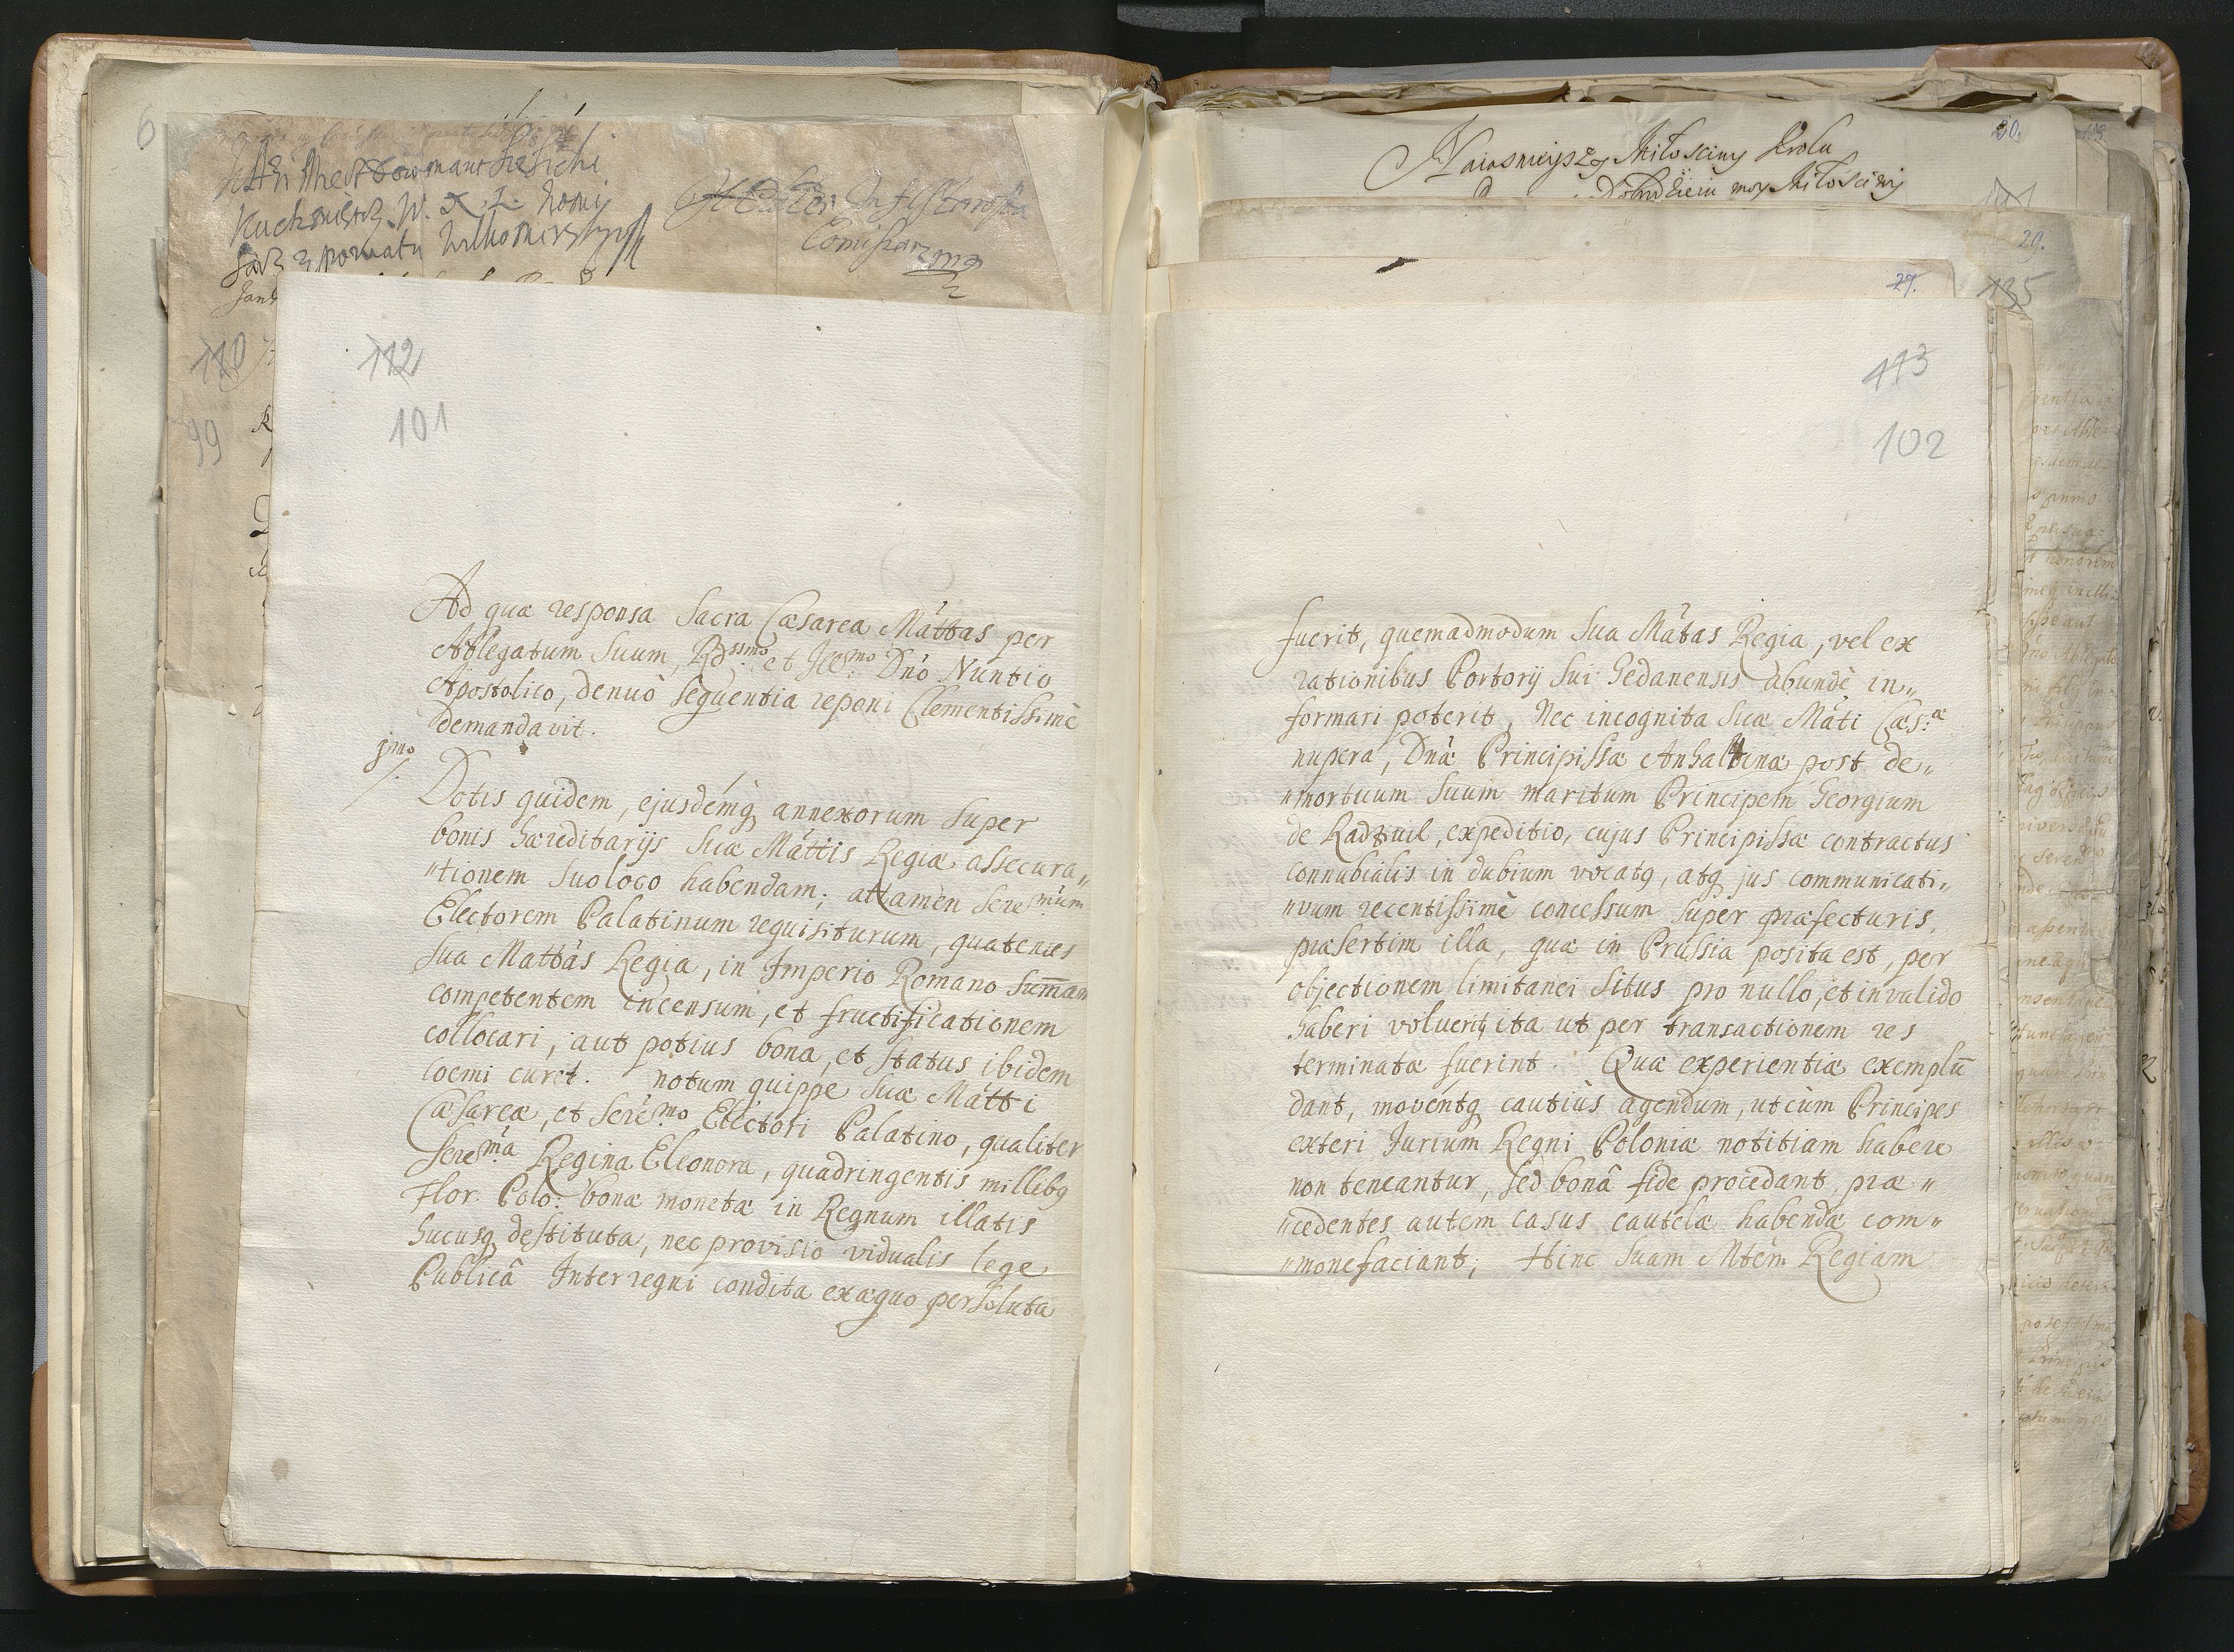 6
Kuchmistrz W. X. L.
Comissarz
110
99
112
101
Ad quæ responsa Sacra Cæsarea Máttas per
Ablegatum Suum, Rdssmo et Illmo Dno Nuntio
Apostolico, denuò sequentia reponi Clementissimè
demandavit.
jmo
Dotis quidem, ejusdémq annexorum super
bonis hæreditarijs Suæ Máttis Regiæ assecura„
„tionem suo loco habendam; attamèn Seresmum
Electorem Palatinum requisiturum, quatenus
Sua Mattàs Regia, in Imperio Romano Summam
competentem in censum, et fructificationem
collocari, aut potius bona, et status ibidem
coemi curet. notum quippe Suæ Mátti
Cæsareæ, et Seresmo Electori Palatino, qualiter
Seresma Regina Eleonora, quadringentis millibq
Flor. Polo: bonæ monetæ in Regnum illatis
hucusq destituta, nec provisio vidualis lege
Publicâ Interregni condita ex æquo persoluta
Naiasnieyszy Miłosciwy Krolu
moy Miłosciwy
30.
29.
135
27.
113
102
fuerit, quemadmodum Sua Mátas Regia, vel ex
rationibus Portorij sui Gedanensis abundè in„
formari poterit, Nec incognita Suæ Máti Cæs:æ
nupera, Dnæ Principissæ Anhaltinæ post de„
„mortuum Suum maritum Principem Georgium
de Radzivil, expeditio, cujus Principissæ contractus
connubialis in dubium vocatq, atq jus communicati„
„vum recentissimè concessum super præfecturis,
præsertim illa, quæ in Prussia posita est, per
objectionem limitanei situs pro nullo, et invalido
haberi voluerit, ita ut per transactionem res
terminata fuerint. Quæ experientiæ exemplū
dant, movéntq cautiùs agendum, ut cùm Principes
exteri Jurium Regni Poloniæ notitiam habere
non teneantur, sed bonâ fide procedant, præ„
„cedentes autem casus cautelæ habendæ com„
„monefaciant; Hinc Suam Mtém Regiam